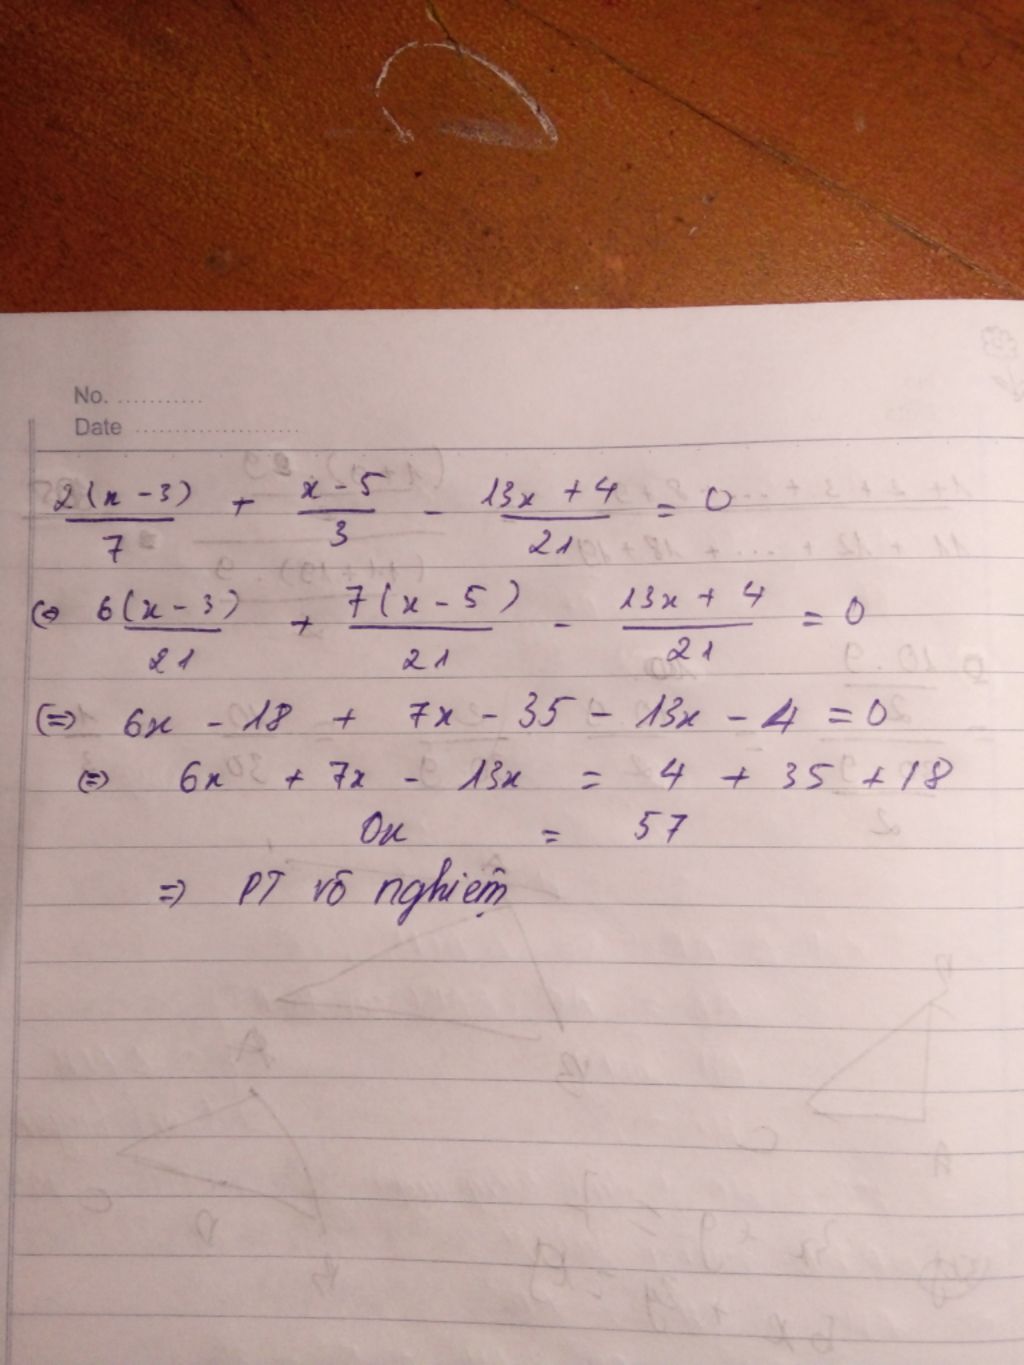 No. ...........
Date .....................
2(x - 3)/7 + x - 5/3 - 13x + 4/21 = 0
(=) 6(x - 3)/21 + 7(x - 5)/21 - 13x + 4/21 = 0
(=) 6x - 18 + 7x - 35 - 13x - 4 = 0
(=) 6x + 7x - 13x = 4 + 35 + 18
0x = 57
=) PT vô nghiệm